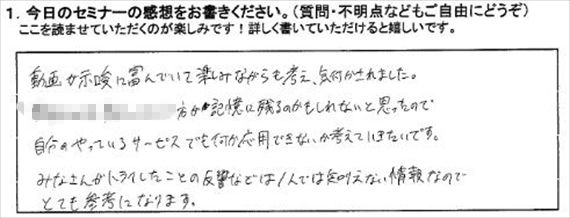 1. 今日のセミナーの感想をお書きください。（質問・不明点などもご自由にどうぞ）
ここを読ませていただくのが楽しみです！詳しく書いていただけると嬉しいです。
動画が示唆に富んでいて楽しみながらも考え、気付かされました。
方が記憶に残るのかもしれないと思ったので
自分のやっているサービスでも何か応用できないか考えていきたいです。
みなさんがトライしたことの反響などは1人では知りえない情報なので
とても参考になります。